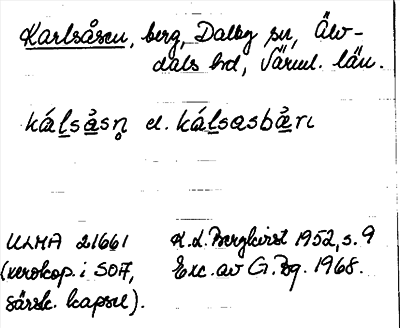 Karlsåsen, berg, Dalby sn, Älv-
dals hd, Värml. län.
kálsåsn̥ el. kálsasbårı
ULMA 21661 K.L. Bergkvist 1952, s. 9
(xerokop. i SOA, Exc. av G. Bg. 1968.
särsk. kapsel).